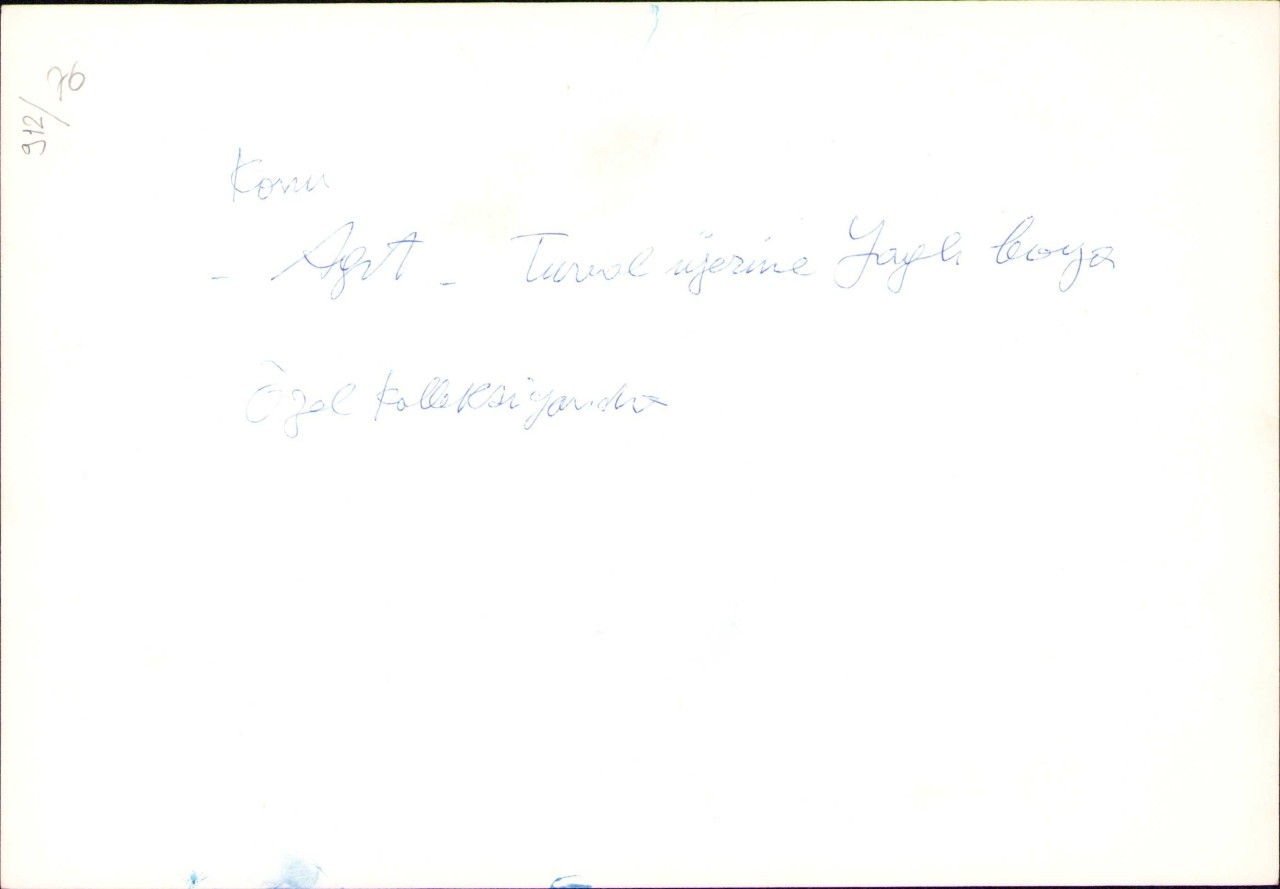 912/76
Konu
- Ağıt - Tuval üzerine Yağlı boya
Özel Kolleksiyonda